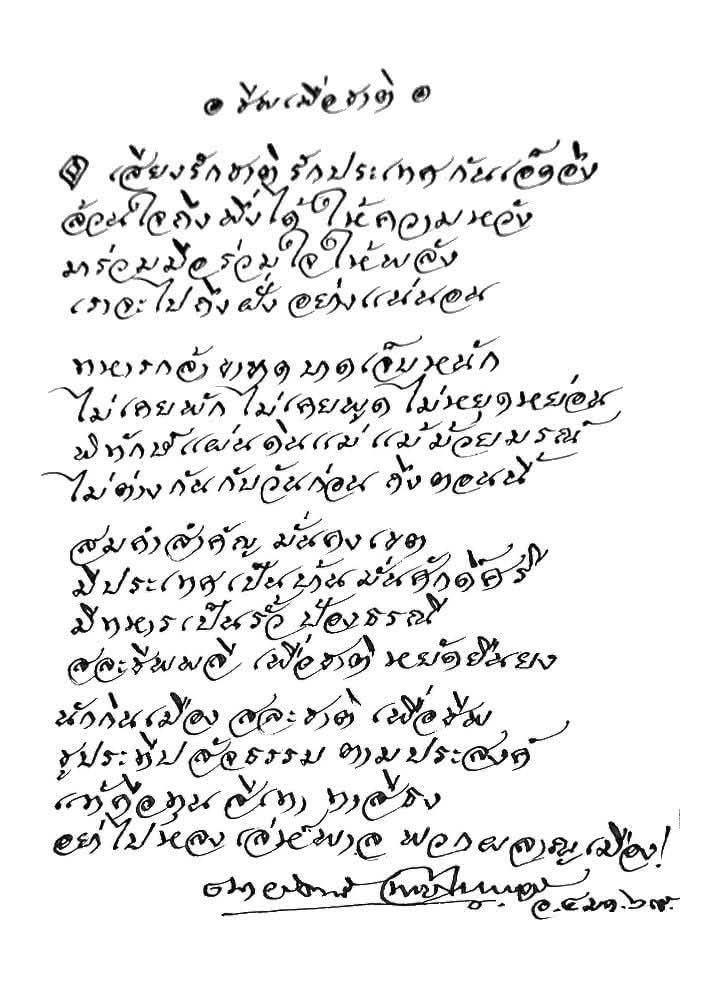 ๏ ชีพเพื่อชาติ ๏
๏ เสียงรักชาติ รักประเทศ กันเอ็ดอึง
ล้วนใจถึง พึ่งได้ ให้ความหวัง
มาร่วมมือ ร่วมใจ ให้พลัง
เราจะไปถึงฝั่ง อย่างแน่นอน
ทหารกล้า ขาขาด บาดเจ็บหนัก
ไม่เคยพัก ไม่เคยพูด ไม่หยุดหย่อน
พิทักษ์แผ่นดินแม่ แม้ม้วยมรณ์
ไม่ต่างกันกับวันก่อน ถึงตอนนี้
สมคำสำคัญ มั่นคงเขต
มีประเทศเป็นบ้าน มั่นศักดิ์ศรี
มีทหารเป็นรั้ว ป้องธรณี
สละชีพพลี เพื่อชาติ หยัดยืนยง
นักกินเมือง สละชาติ เพื่อชีพ
ชูประทีป สัจธรรม ตามประสงค์
แท้คือทุน สีเทา ทาสีธง
อย่าไปหลง เล่ห์พาล พวกผลาญเมือง!
อ. ๔ มค. ๖๙.